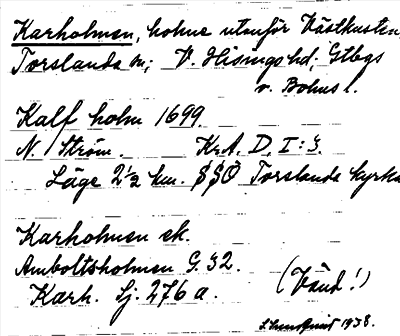 Karholmen, holme utenför Västkusten,
Torslanda sn; V. Hisings hd; Gtbgs
o. Bohus l.
Kalf holm 1699.
N. Ström. KrA. D. I: 3.
Läge 2 1/2 km. SSÖ Torslanda kyrka
Karholmen ek.
Amboltsholmen G. 32.
Karh. Sj. 276 a. (Vänd!)
Lundquist 1938.